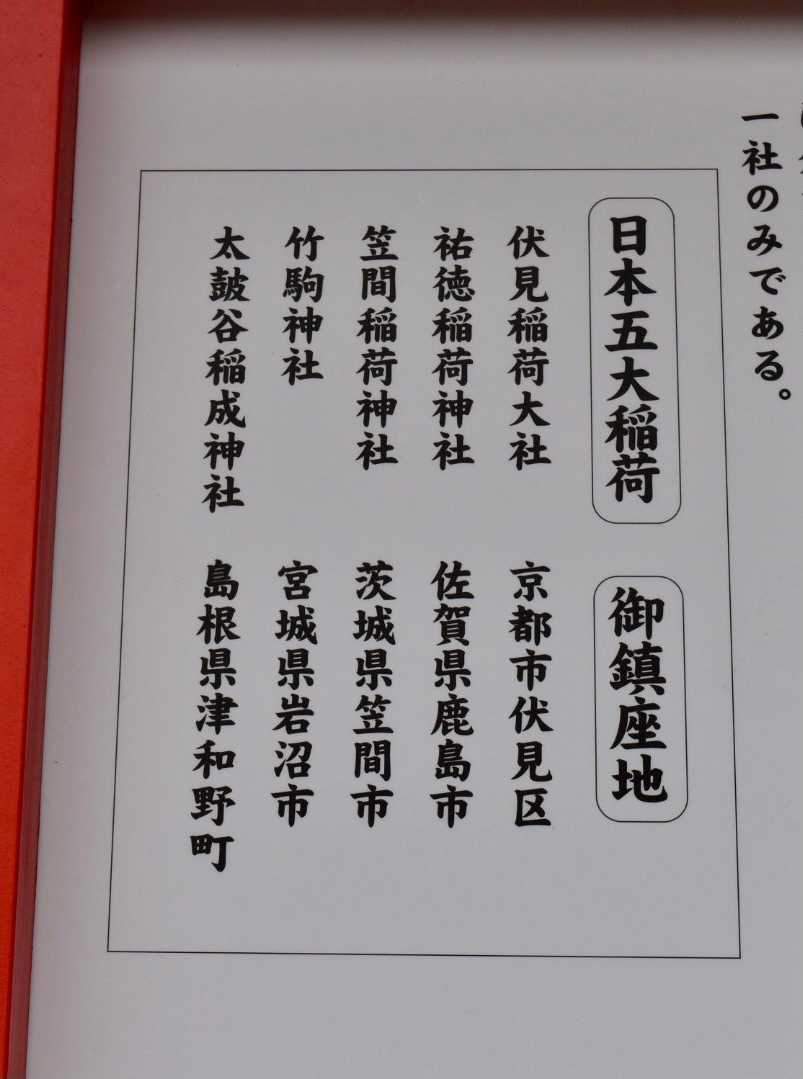 一社のみである。
日本五大稲荷 御鎮座地
伏見稲荷大社 京都市伏見区
祐徳稲荷神社 佐賀県鹿島市
笠間稲荷神社 茨城県笠間市
竹駒神社 宮城県岩沼市
太皷谷稲成神社 島根県津和野町